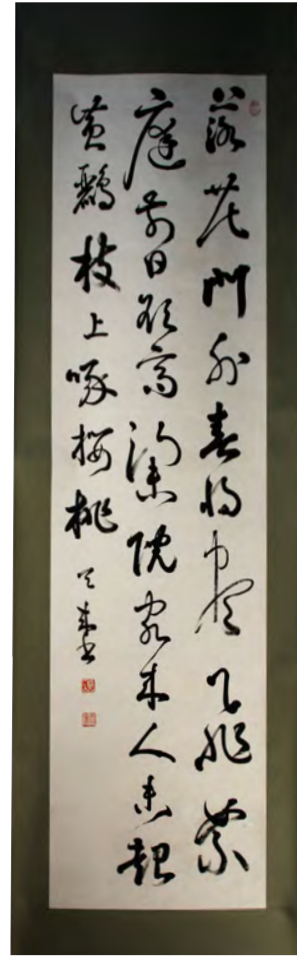 落花門外春將盡飛絮
庭前日欲高深院客來人未起
黃鸝枝上啄櫻桃